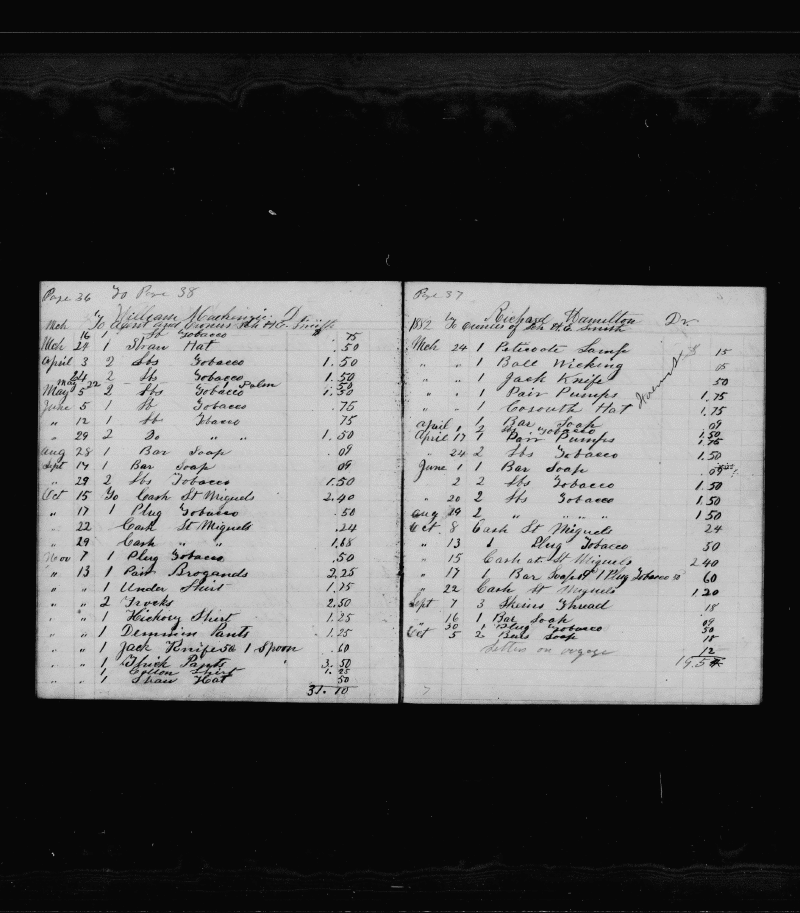 Page 36 To Page 38
William Mackenzie Dr
Mch To Agent and Owners Sch H.G. Smith $
16 1 lb Tobacco 75
Mch 24 1 Straw Hat .50
April 3 2 lbs Tobacco 1.50
24 2 lbs Tobacco 1.50
May 22 Palm .50
May 5 2 lbs Tobacco 1.50
June 5 1 lb Tobacco .75
" 12 1 lb Tobacco 75
" 29 2 Do " " 1.50
Aug 28 1 Bar Soap .09
Sept 14 1 Bar Soap 09
" 29 2 lbs Tobacco 1.50
Oct 15 To Cash St Miguels 2.40
" 17 1 Plug Tobacco .50
" 22 Cash St Miguels .24
" 29 Cash " " 1.68
Nov 7 1 Plug Tobacco .50
" 13 1 Pair Brogands 2.25
" " 1 Under Shirt 1.75
" " 2 Frocks 2.50
" " 1 Hickory Shirt 1.25
" " 1 Demmin Pants 1.25
" " 1 Jack Knife 50 1 Spoon .60
" " 1 Thick Pants 3.50
" 1 Cotton Shirt 1.25
" " 1 Straw Hat 50
31.10
Page 37
Richard Hamilton Dr.
1882 To Owners of Sch H.G. Smith
Mch 24 1 Peticoate Lamp $ 15
" " 1 Ball Wicking 05
" " 1 Jack Knife 50
" " 1 Pair Pumps 1.75
" " 1 Cosouth Hat 1.75
April 1 1 Bar Soap 09
2 lbs Tobacco 1.50
April 17 1 Pair Pumps 1.75
" 24 2 lbs Tobacco 1.50
June 1 1 Bar Soap .09
2 2 lbs Tobacco 1.50
" 20 2 lbs Tobacco 1.50
Aug 19 2 " " " " 1.50
Oct 8 Cash St Miguels 24
" 13 1 Plug Tobacco 50
" 15 Cash at St Miguels 2.40
" 17 1 Bar Soap 09 1 Plug Tobacco 50 60
" 22 Cash St Miguels 1.20
Sept 7 3 Skeins Thread 18
" 16 1 Bar Soap 09
" 30 1 Plug Tobacco 50
Oct 5 2 Bars Soap 18
Letters on voyage 12
19.54
7